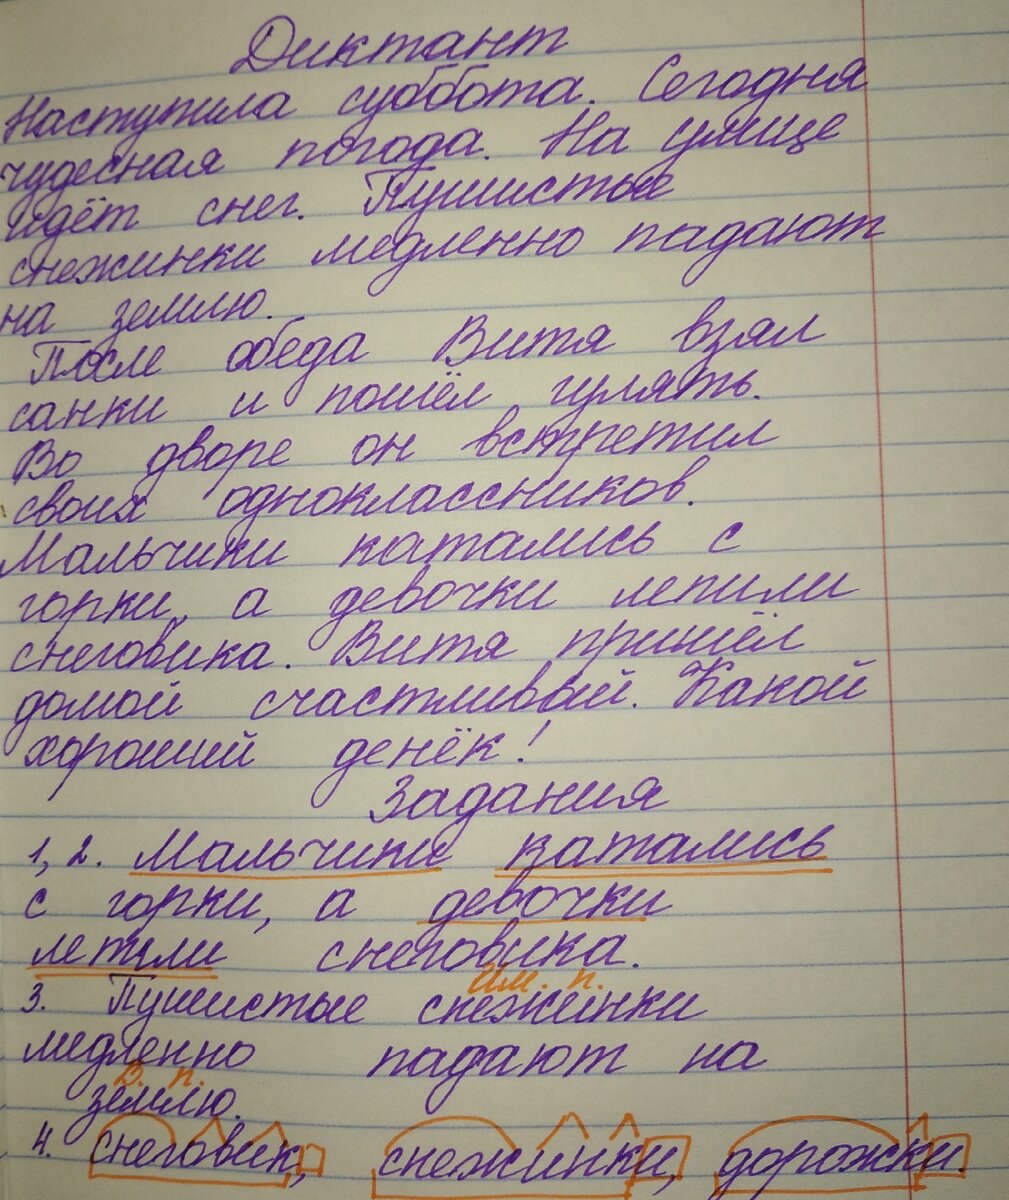 Диктант
Наступила суббота. Сегодня
чудесная погода. На улице
идёт снег. Пушистые
снежинки медленно падают
на землю.
После обеда Витя взял
санки и пошёл гулять.
Во дворе он встретил
своих одноклассников.
Мальчики катались с
горки, а девочки лепили
снеговика. Витя пришёл
домой счастливый. Какой
хороший денёк!
Задания
1, 2. Мальчики катались
с горки, а девочки
лепили снеговика.
им. п.
3. Пушистые снежинки
медленно падают на
в. п.
землю.
4. снеговик, снежинки, дорожки.